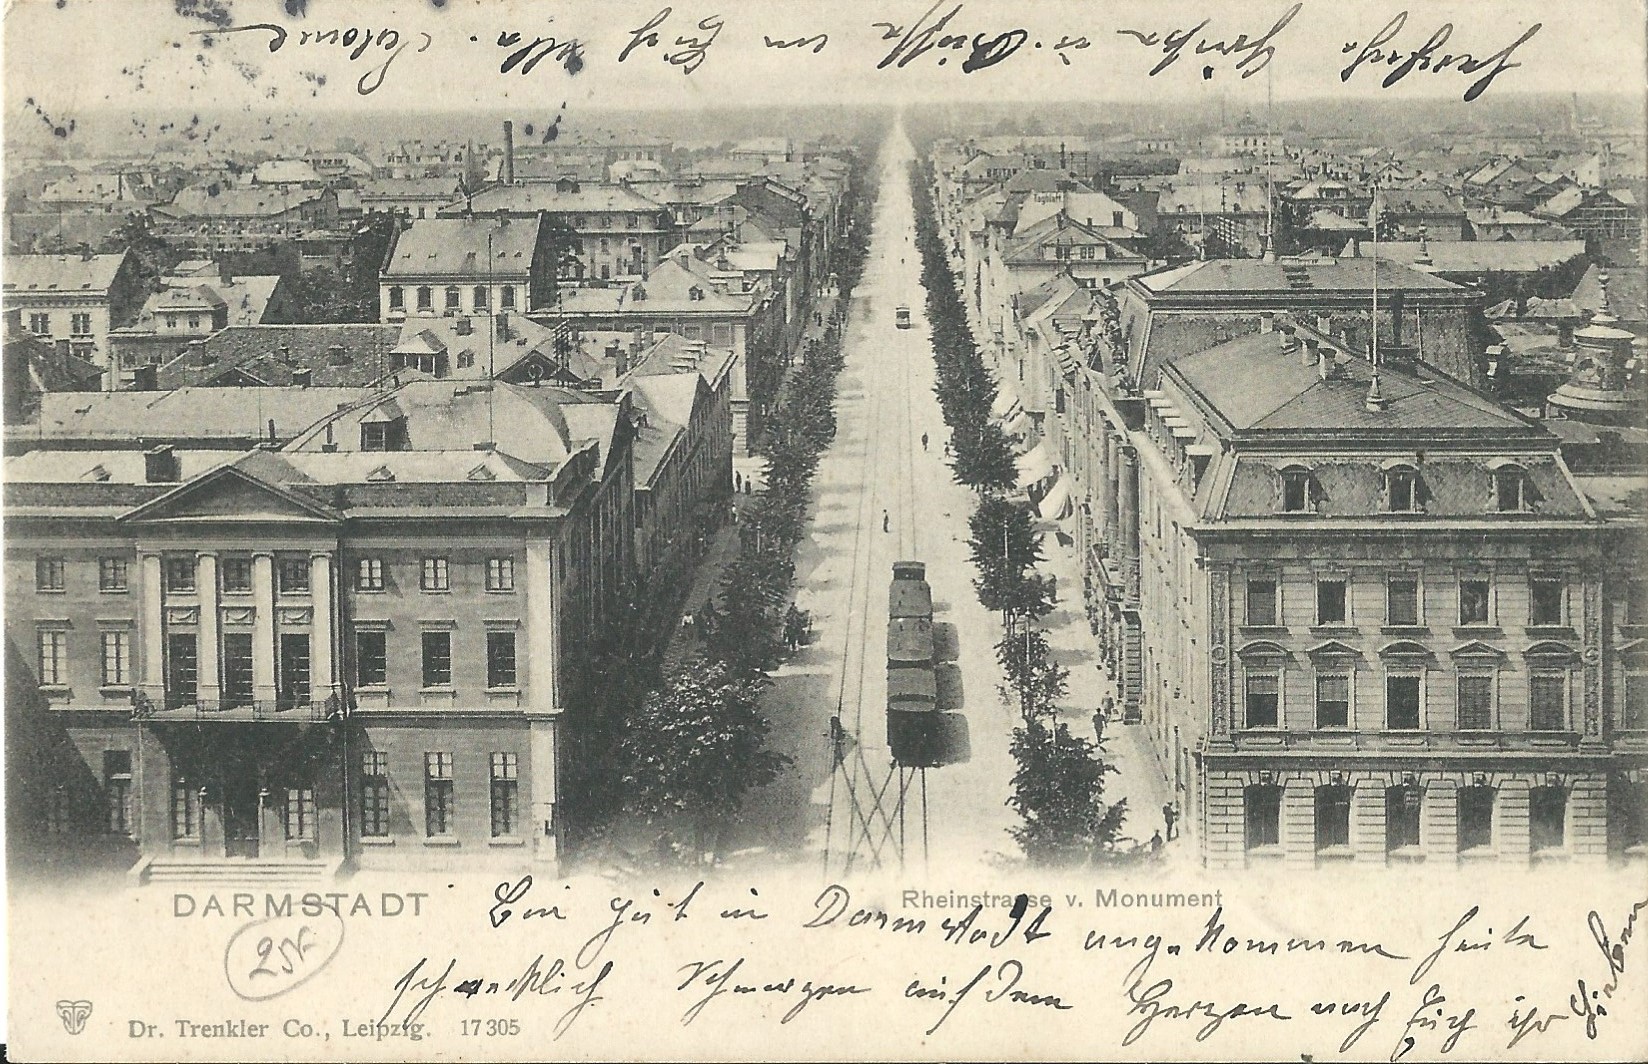 DARMSTADT
Rheinstrasse v. Monument
Bin gut in Darmstadt angekommen heute
schrecklich Schmerzen auf dem Herzen nach Euch ihr
Lieben
Grüße u. Küsse an Euch alle.
25.-
Dr. Trenkler Co., Leipzig. 17305